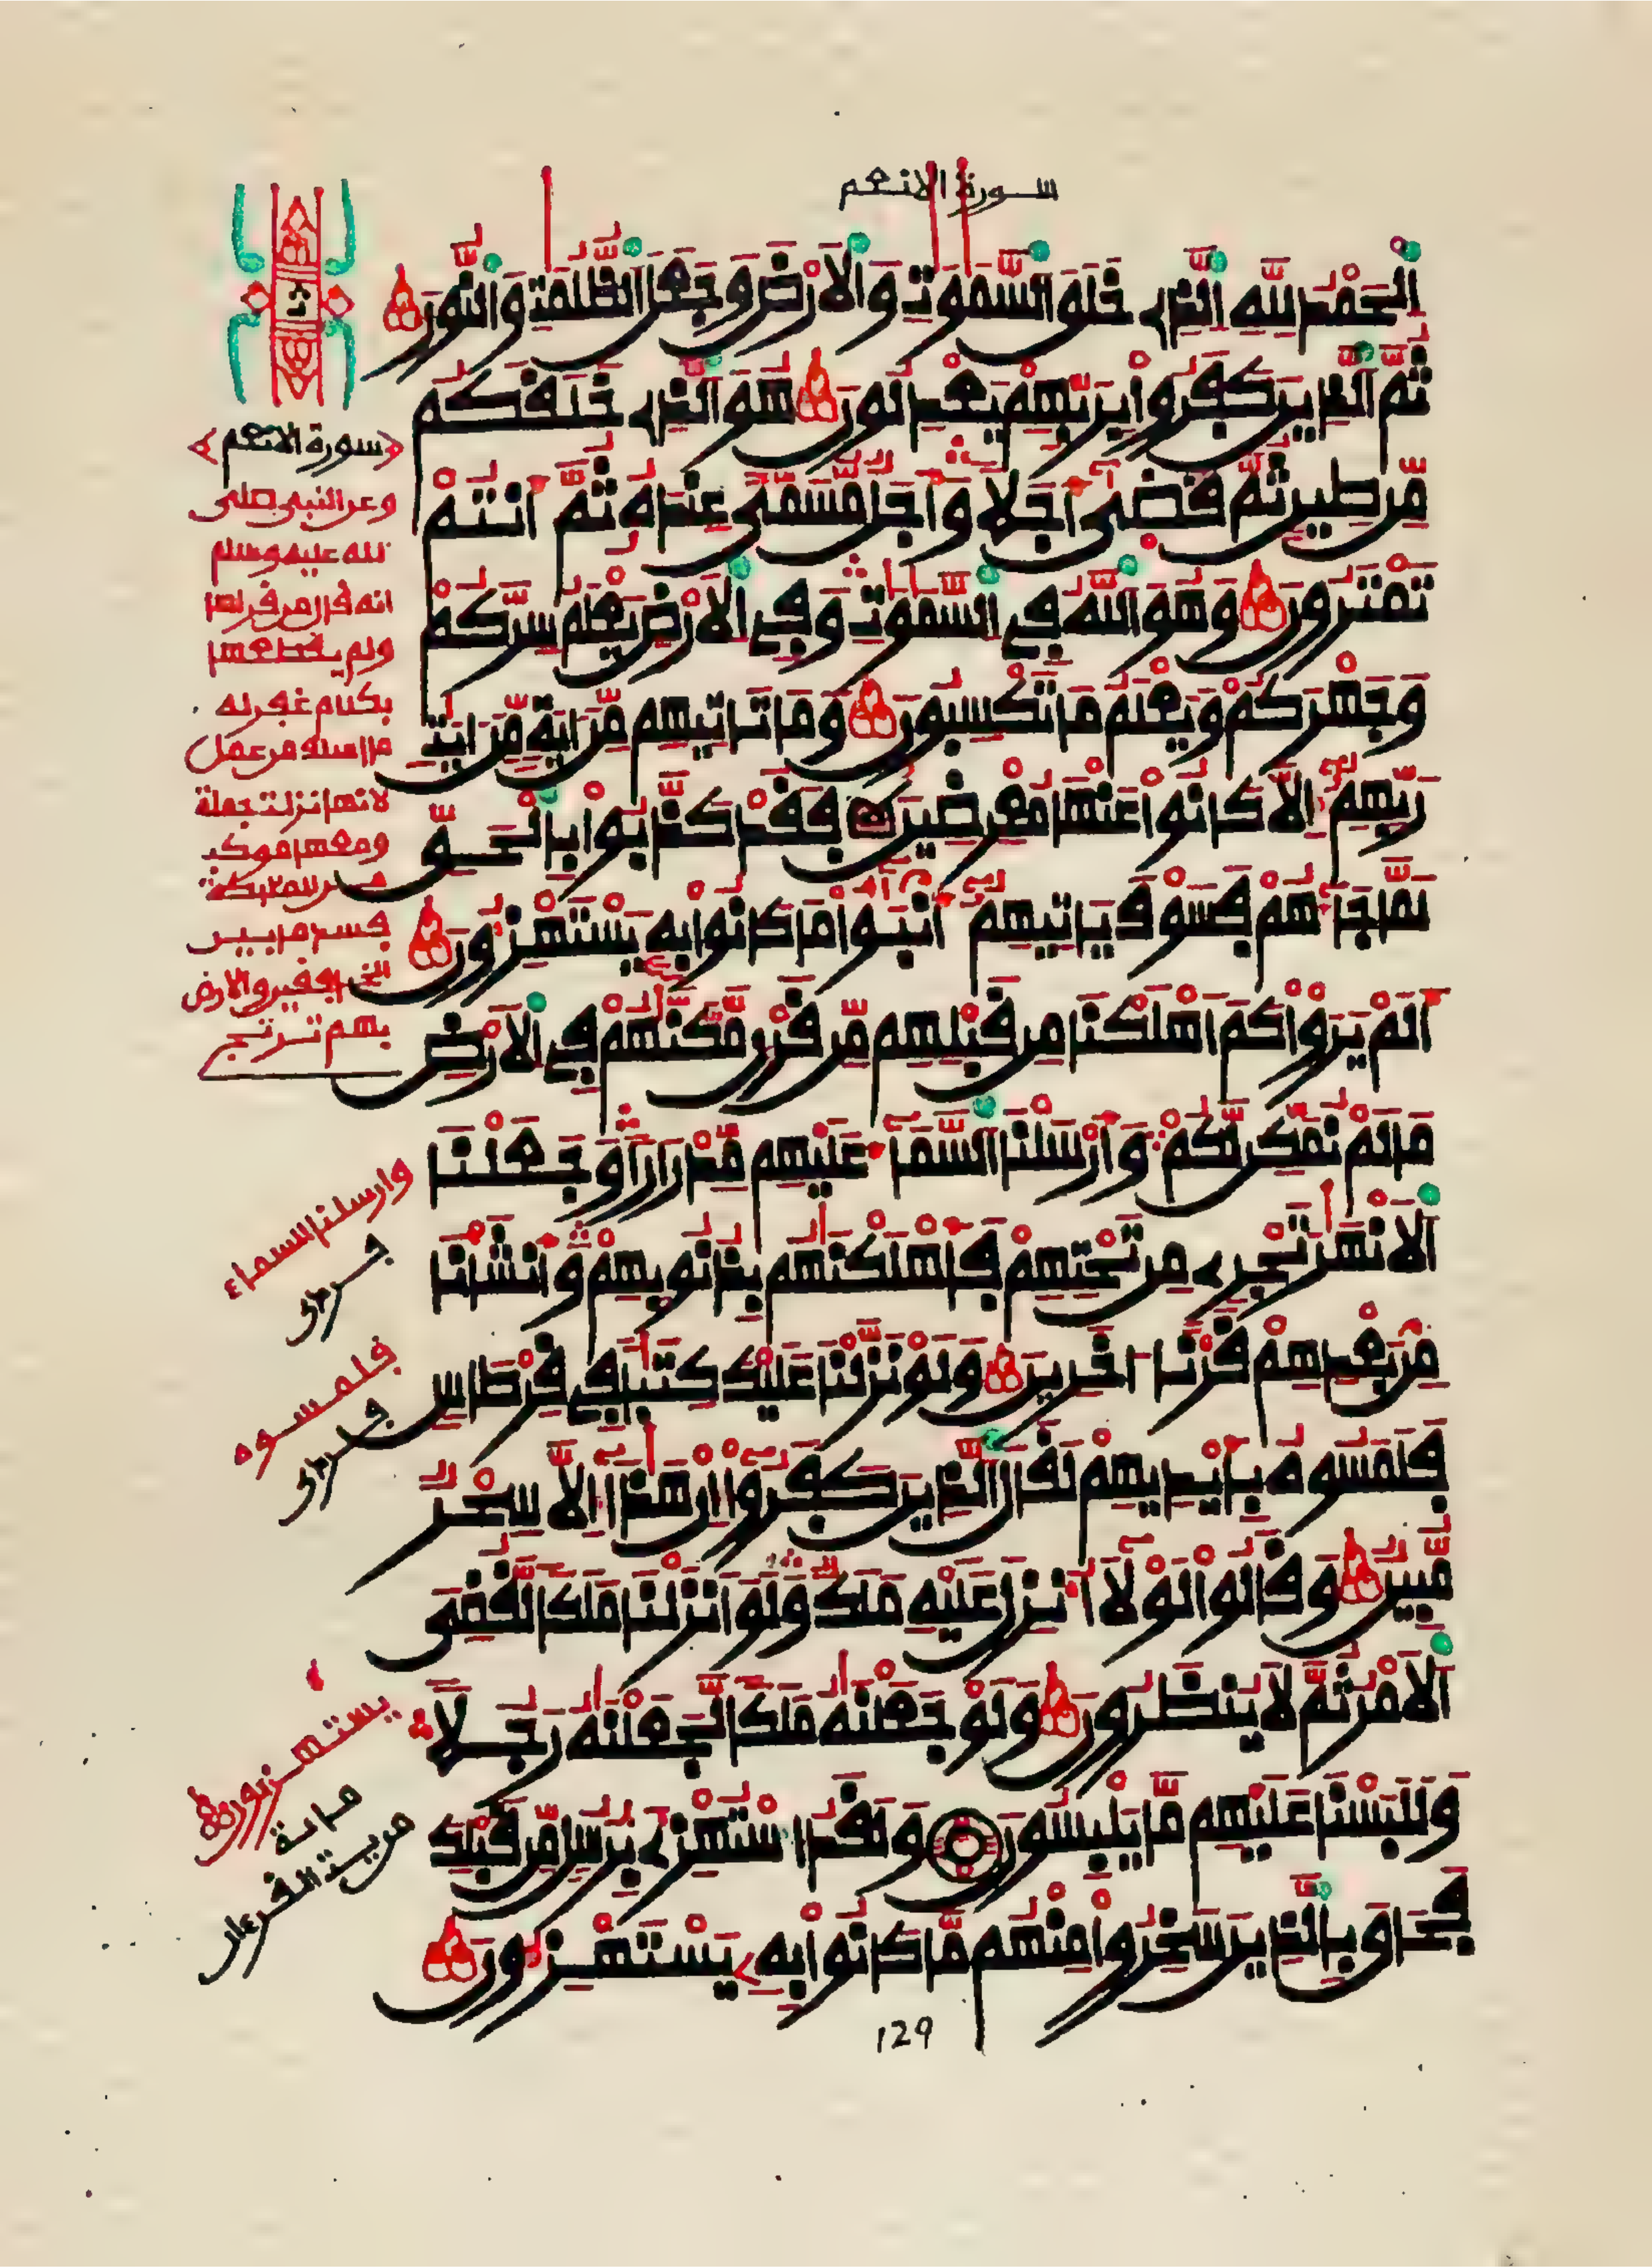 سورة الانعم
اَلْحَمْدُ لِلهِ الذِے خَلَقَ السَّمَٰوَٰتِ وَالَارْضَ وَجَعَلَ الظُّلُمَٰتِ وَالنُّورَ
ثُمَّ الذِينَ كَفَرُوا بِرَبِّهِمْ يَعْدِلُونَ هُوَ الذِے خَلَقَكُم
مِّن طِينٍ ثُمَّ قَضَىٰ أَجَلًا وَأَجَلٌ مُّسَمًّى عِندَهُ ثُمَّ أَنتُمْ
تَمْتَرُونَ وَهُوَ اللهُ فِي السَّمَٰوَٰتِ وَفِي الَارْضِ يَعْلَمُ سِرَّكُمْ
وَجَهْرَكُمْ وَيَعْلَمُ مَا تَكْسِبُونَ وَمَا تَاتِيهِم مِّنَ ايَةٍ مِّنَ ايَٰتِ
رَبِّهِمْ إِلَّا كَانُوا عَنْهَا مُعْرِضِينَ فَقَدْ كَذَّبُوا بِالْحَقِّ
لَمَّا جَآءَهُمْ فَسَوْفَ يَاتِيهِمْ أَنۢبَٰٓؤُا مَا كَانُوا بِهِ يَسْتَهْزِءُونَ
أَلَمْ يَرَوْا كَمَ اَهْلَكْنَا مِن قَبْلِهِم مِّن قَرْنٍ مَّكَّنَّٰهُمْ فِي الَارْضِ
مَا لَمْ نُمَكِّن لَّكُمْ وَأَرْسَلْنَا السَّمَآءَ عَلَيْهِم مِّدْرَارًا وَجَعَلْنَا
اَلَانْهَٰرَ تَجْرِے مِن تَحْتِهِمْ فَأَهْلَكْنَٰهُم بِذُنُوبِهِمْ وَأَنشَأْنَا
مِنۢ بَعْدِهِمْ قَرْنًا اٰخَرِينَ وَلَوْ نَزَّلْنَا عَلَيْكَ كِتَٰبًا فِي قِرْطَاسٍ
فَلَمَسُوهُ بِأَيْدِيهِمْ لَقَالَ الذِينَ كَفَرُوا إِنْ هَٰذَا إِلَّا سِحْرٌ
مُّبِينٌ وَقَالُوا لَوْلَا أُنزِلَ عَلَيْهِ مَلَكٌ وَلَوَ اَنزَلْنَا مَلَكًا لَّقُضِيَ
اَلَامْرُ ثُمَّ لَا يُنظَرُونَ وَلَوْ جَعَلْنَٰهُ مَلَكًا لَّجَعَلْنَٰهُ رَجُلًا
وَلَلَبَسْنَا عَلَيْهِم مَّا يَلْبِسُونَ وَلَقَدُ اسْتُهْزِےَ بِرُسُلٍ مِّن قَبْلِكَ
فَحَاقَ بِالذِينَ سَخِرُوا مِنْهُم مَّا كَانُوا بِهِ يَسْتَهْزِءُونَ
129
ث
سورة الانعم
وعن النبي صلى
الله عليه وسلم
انه قال من قراها
ولم يقطعها
بكلام غفر له
ما اسلف من عمل
لانها نزلت جملة
ومعها موكب
من الملئكة
فسد ما بين
الخافقين والارض
بهم ترتج
وارسلنا السماء
فلمسوه
يستهزءون